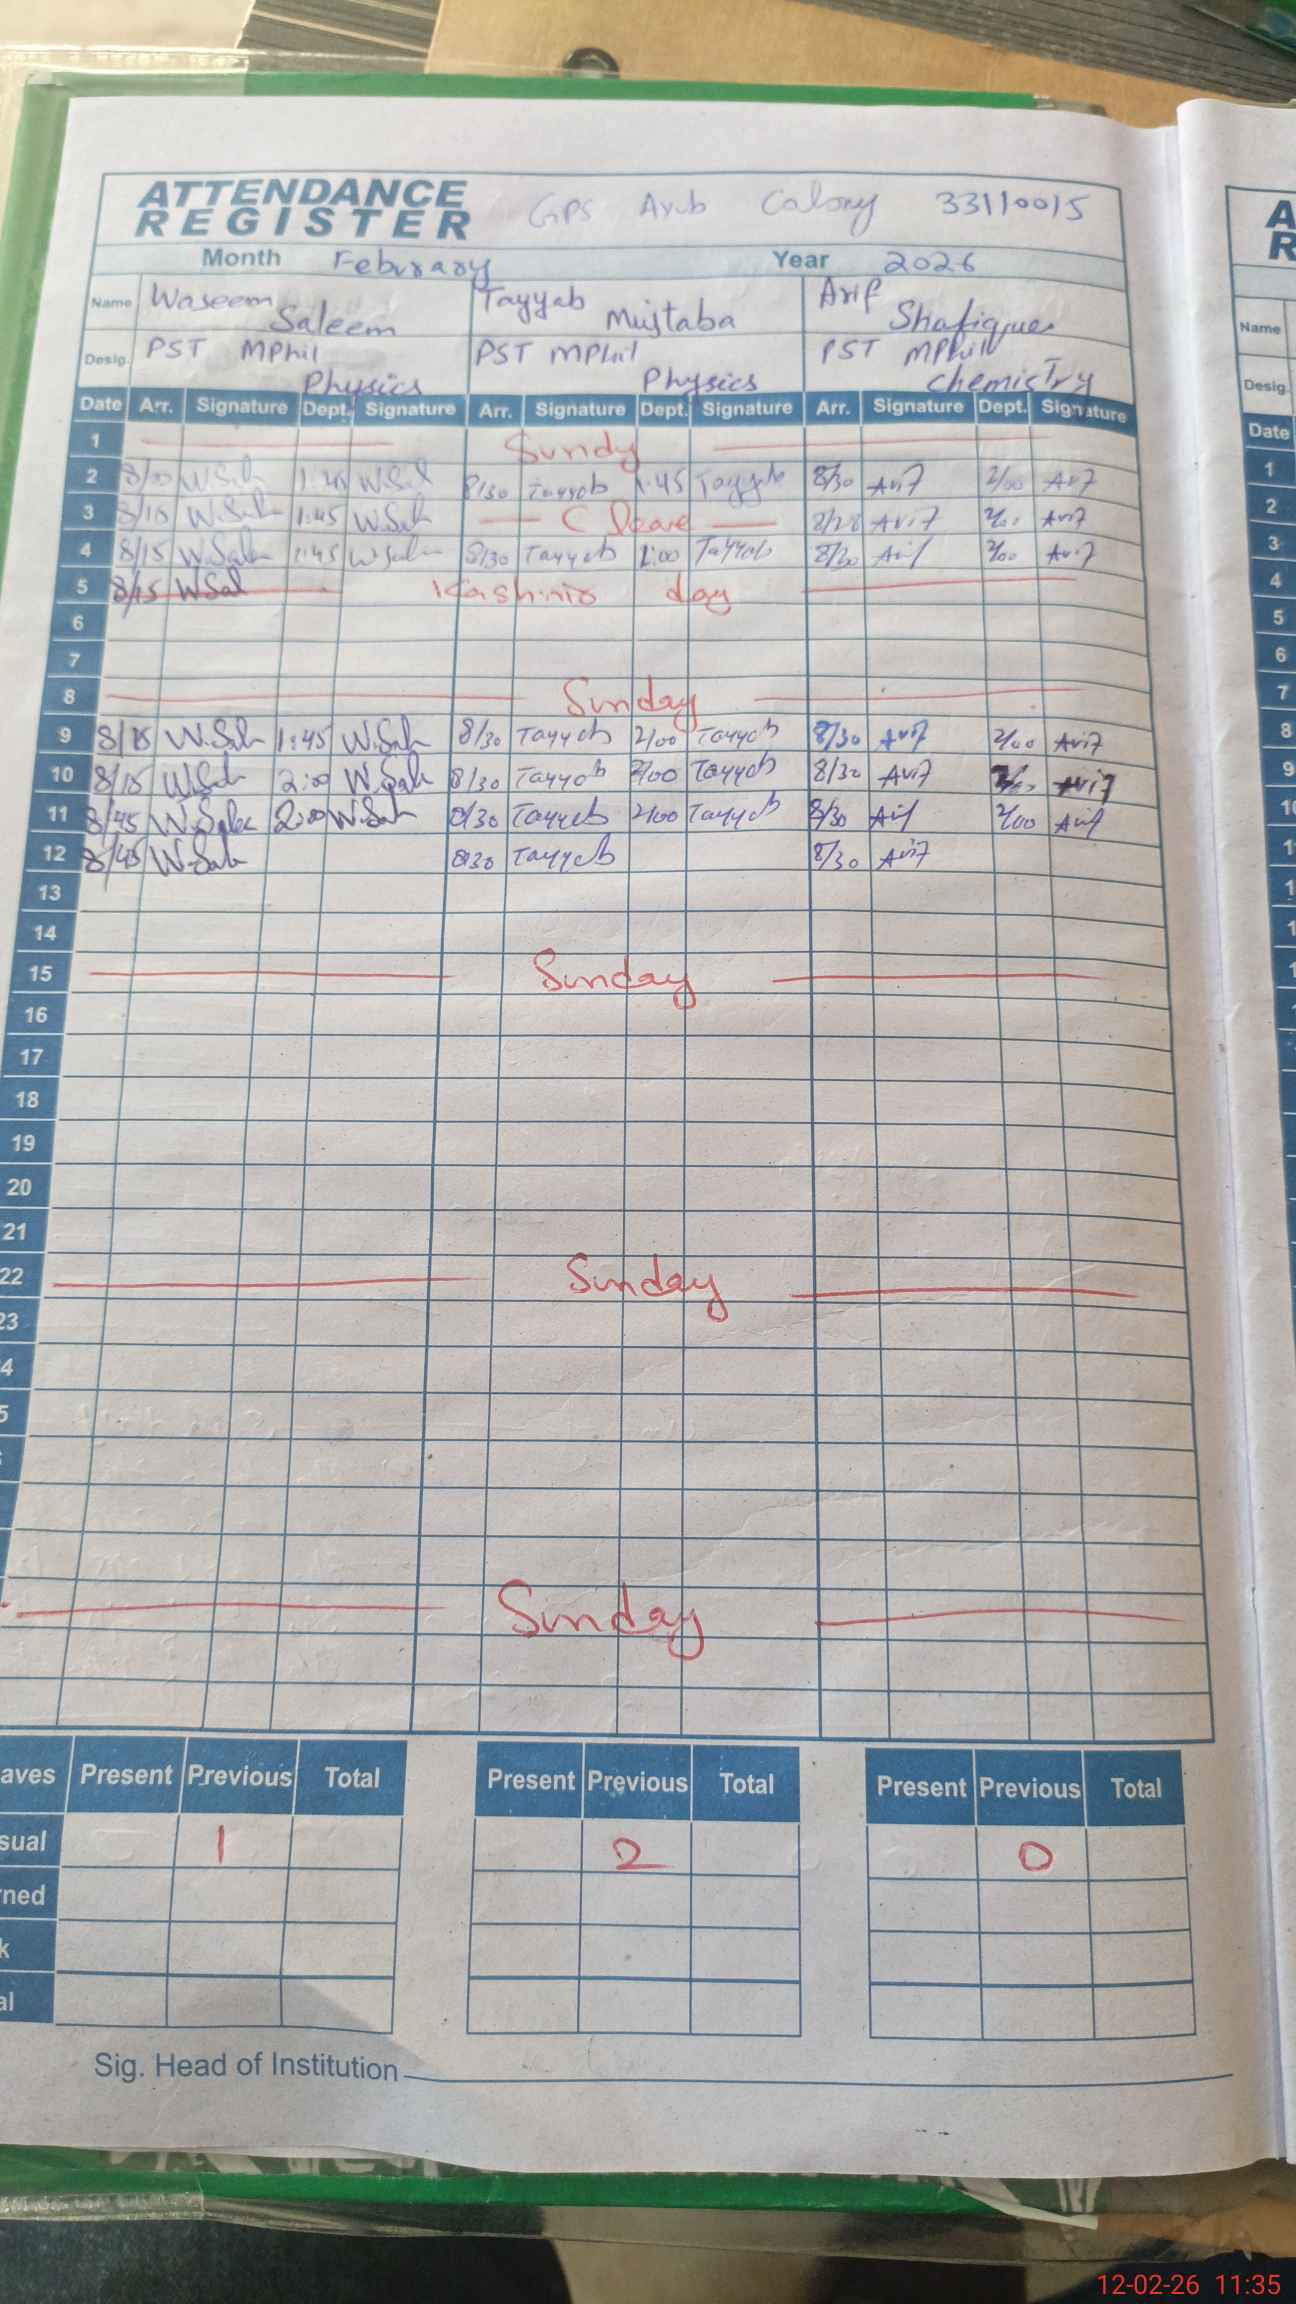 ATTENDANCE
REGISTER
GPS Arub Colony 33110015
Month Febuarary Year 2026
Name Waseem Saleem Tayyab Mujtaba Arif Shafique
Desig. PST MPhil Physics PST MPhil Physics PST MPhil chemistry
Date Arr. Signature Dept. Signature Arr. Signature Dept. Signature Arr. Signature Dept. Signature
1 Sundy
2 8/00 W.Sal 1:45 W.Sal 8/30 Tayyab 1:45 Tayyab 8/30 Arif 2/00 Arif
3 8/10 W.Sal 1:45 W.Sal C Leave Arif Arif
4 8/15 W.Sal 1:45 W.Sal 8/30 Tayyab 1:00 Tayyab 8/30 Arif 2/00 Arif
5 8/15 WSal Kashmir day
6
7
8 Sunday
9 8/15 W.Sal 1:45 W.Sal 8/30 Tayyab 2/00 Tayyab 8/30 Arif 2/00 Arif
10 8/15 W.Sal 2:00 W.Sal 8/30 Tayyab 2/00 Tayyab 8/30 Arif Arif
11 8/45 W.Sal 2:00 W.Sal 8/30 Tayyab 2/00 Tayyab 8/30 Arif 2/00 Arif
12 8/45 W.Sal 8:30 Tayyab 8/30 Arif
13
14
15 Sunday
16
17
18
19
20
21
22 Sunday
23
4
5
Sunday
aves Present Previous Total Present Previous Total Present Previous Total
sual 1 2 0
rned
k
al
Sig. Head of Institution
A
R
Name
Desig
Date
1
2
3
4
5
6
7
8
9
10
1
12-02-26 11:35